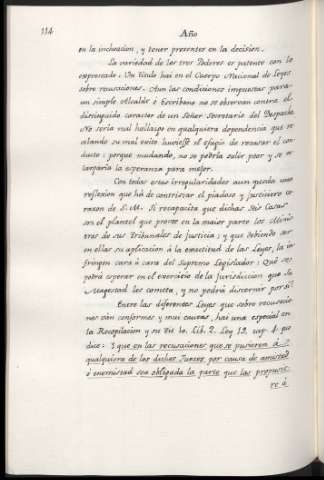 114
Año
en la inchoacion, y tener presentes en la decision.
La variedad de los tres Poderes es patente con lo
expresado. Un titulo hai en el Cuerpo Nacional de Leyes
sobre recusaciones. Aun las condiciones impuestas para
un simple Alcalde ó Escribano no se observan contra el
distinguido caracter de un Señor Secretario del Despacho
No seria mal hallazgo en qualquiera dependencia que re
alcando su mal exito tuviesse el efugio de recusar el con
ducto: porque mudando, no se podria salir peor y se re
forzaria la esperanza para mejor.
Con todas estas irregularidades aun queda una
reflexion que há de contristar el piadoso y justiciero co
razon de S. M. Si recapacita que dichas Seis Casas
son el plantel que provee en la maior parte los Minis
tros de sus Tribunales de Justicia; y que debiendo ser
en ellas su aplicacion à la exactitud de las Leyes, la in
fringen cara à cara del Supremo Legislador: Què se
podra esperar en el exercicio de la Jurisdiccion que Su
Magestad les cometa, y no podrá discernir por si?
Entre las diferentes Leyes que sobre recusacio
nes son conformes y mui cautas, hai una especial en
la Recopilacion y su Tit. 10. Lib. 2. Ley 19. cap. 4. que
dice: Y que en las recusaciones que se pusieren à
qualquiera de los dichos Jueces por causa de amistad
ò enemistad sea obligada la parte que las propusie
re à